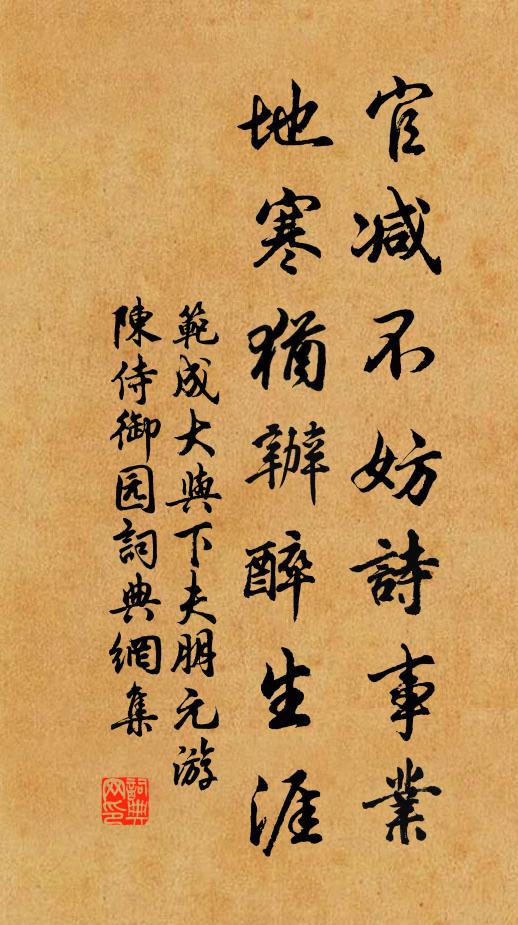 官减不妨詩事業
地寒猶辦醉生涯
範成大與下夫朋元游
陳侍御园詞典網集
詞典网印